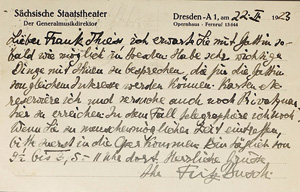 Sächsische Staatstheater
Der Generalmusikdirektor
Dresden-A 1, am 22. II. 1923
Opernhaus - Fernruf
Lieber Frank Thiess ich erwarte Sie mit Gattin so
bald wie möglich in Dresden. Habe sehr wichtige
Dinge mit Ihnen zu besprechen, die für die Gattin
von gleichem Interesse werden können. Karten etc.
reserviere ich und versuche auch noch Privatquartier
hier zu erreichen. In dem Fall telegraphiere ich noch
Wenn Sie zu
bitte zuerst in die Oper kommen. Bin täglich von
Uhr dort. Herzliche Grüsse
Ihr Fritz Busch